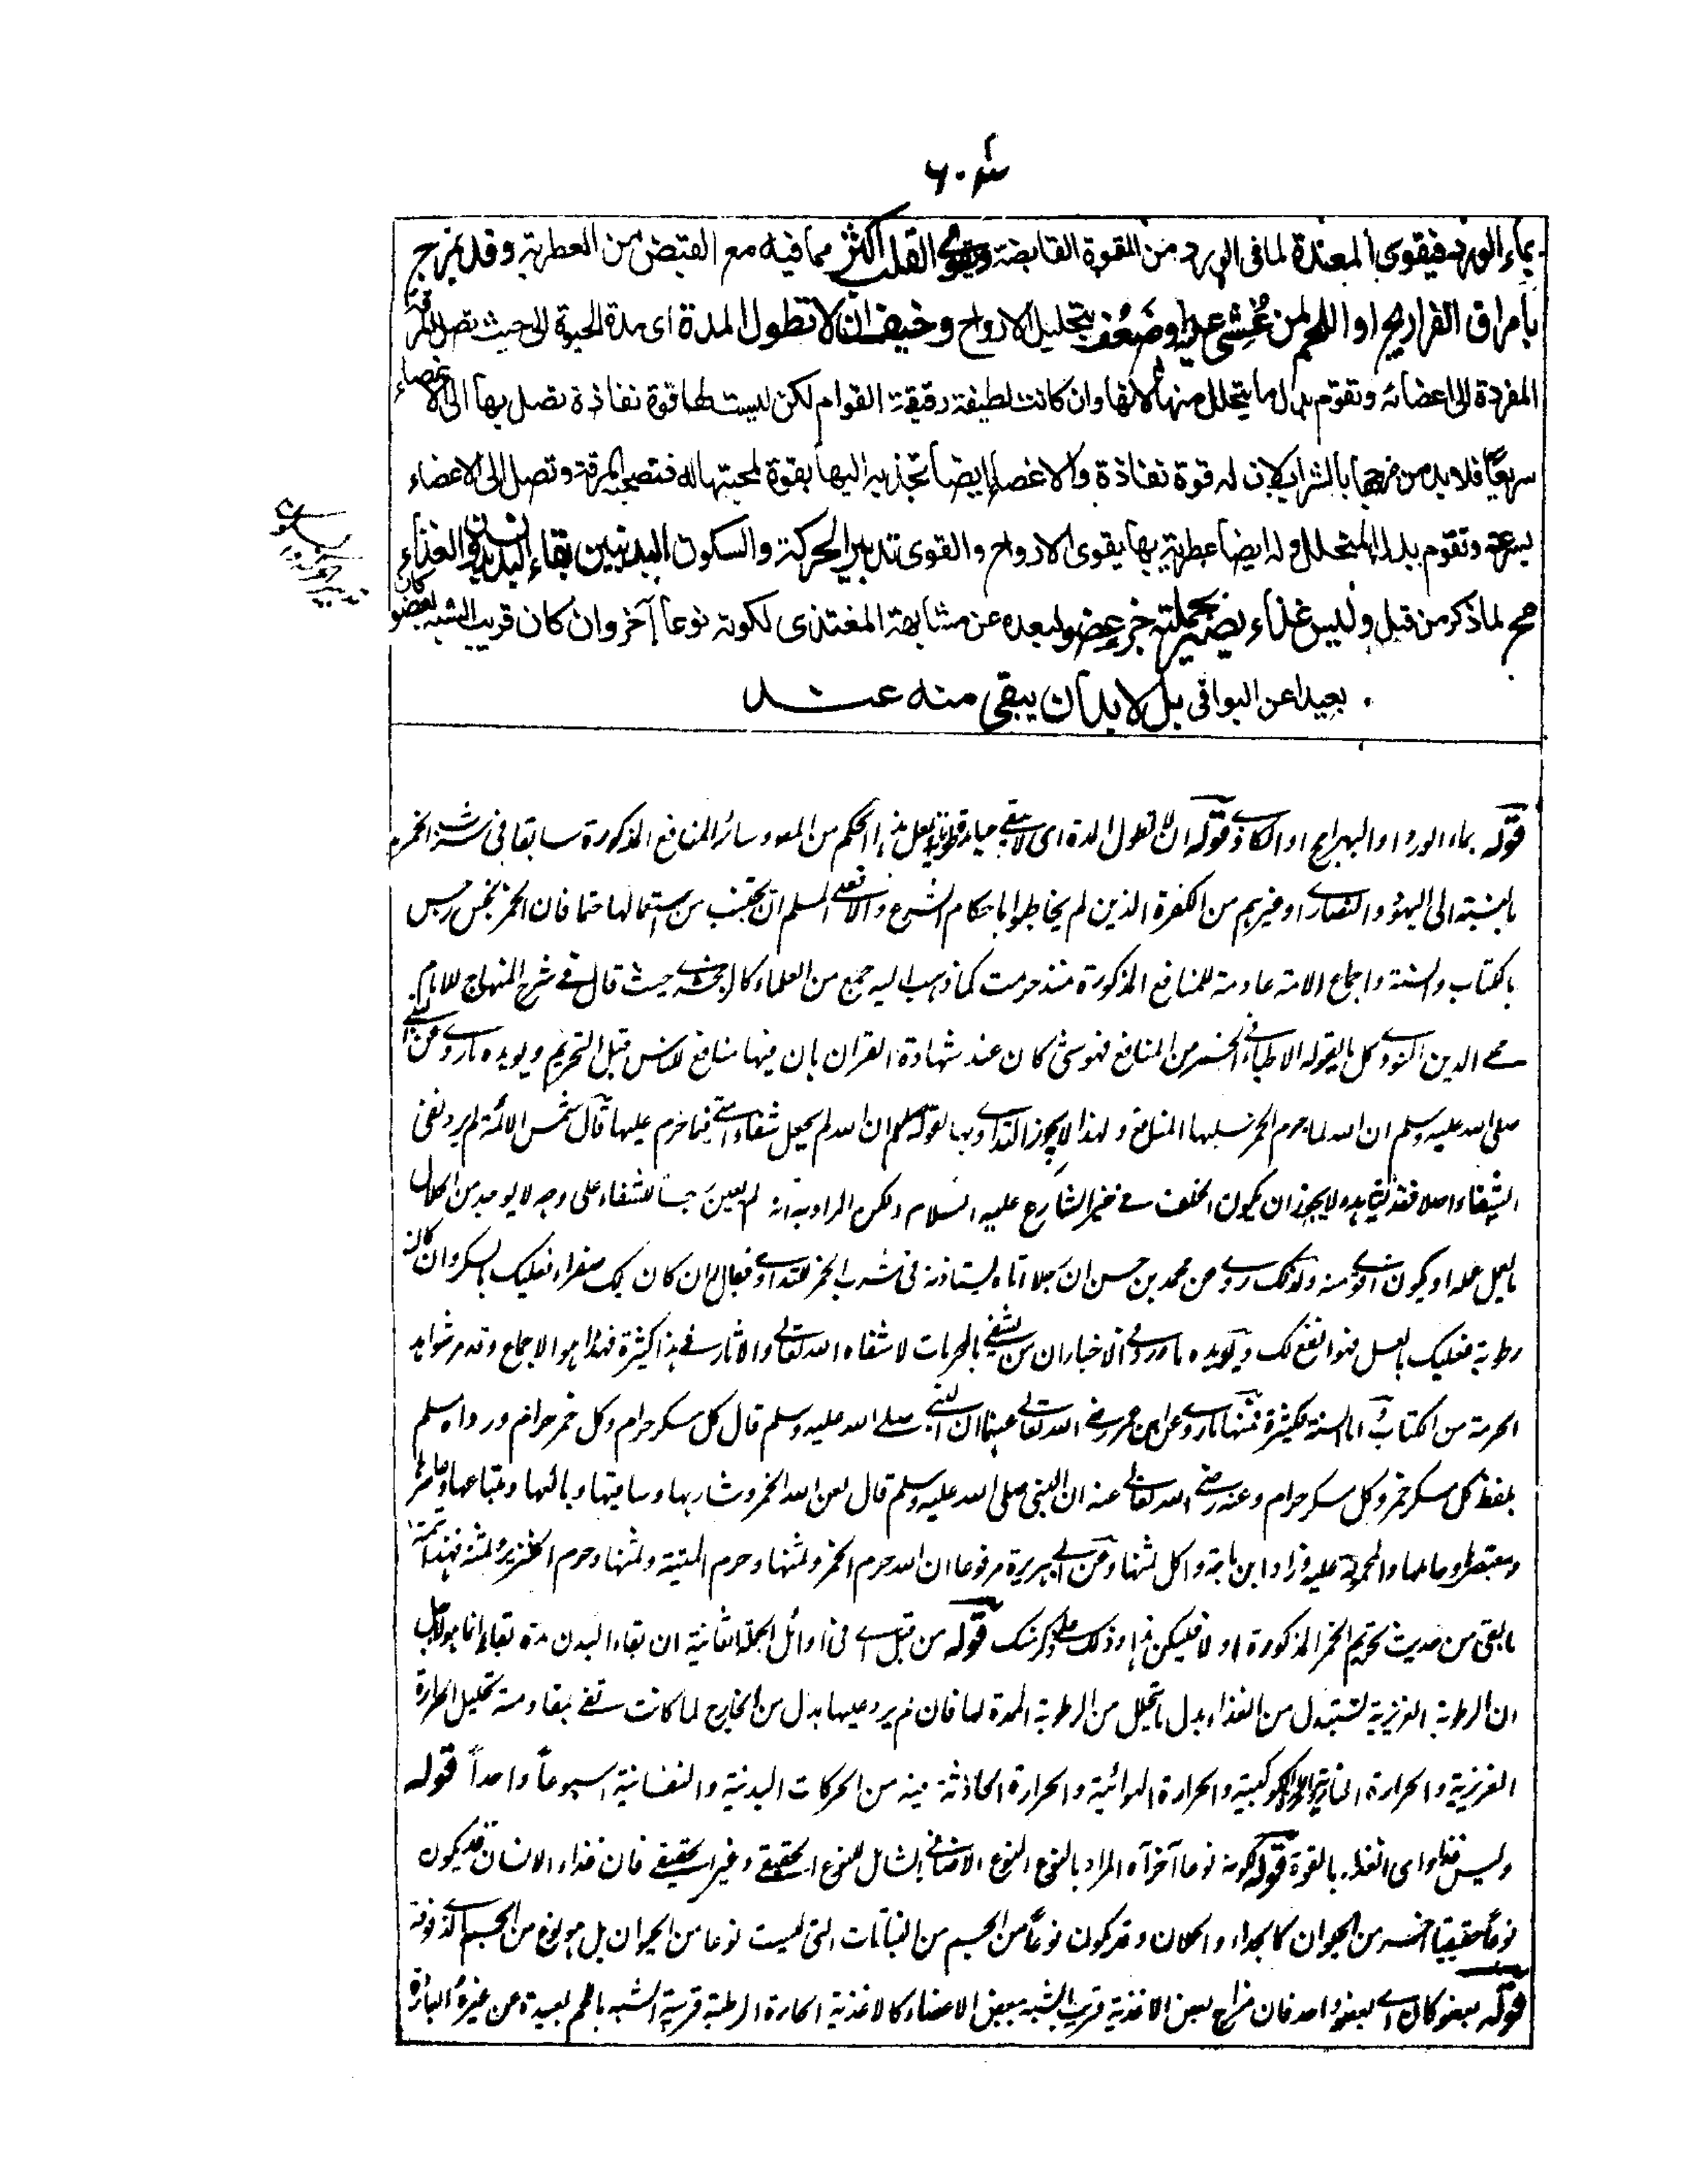 ٦٠
بماء الورد فيقوى المعدة لما فى الورد من القوة القابضة ويقوى القلب اكثر مما فيه مع القبض من العطرية وقد يمزج
بامراق الفراريج او اللحم لمن غشى عليه او ضعف بتحليل الارواح وخيف ان لا تطول المدة اى مدة الحيوة الى حيث تصل المرقة
المفردة الى اعضائه وتقوم بدل ما يتحلل منها لانها وان كانت لطيفة رقيقة القوام لكن ليست لها قوة نفاذة تصل بها الى الاعضاء
سريعا فلا بد من مزجها بالشراب لان له قوة نفاذة والاعضاء ايضا تجذبه اليها بقوة لمحبتها له فتصحبه المرقة وتصل الى الاعضاء
بسرعة وتقوم بدل المتحلل وله ايضا عطرية بها يقوى الارواح والقوى تدبير الحركة والسكون البدنيين بقاء البدن بدون الغذاء
مح لما ذكر من قبل وليس غذاء يصير بجملته جزء عضو لبعده عن مشابهة المغتذى لكونه نوعا آخر وان كان قريب الشبه بعضو كان
بعيدا عن البواقى بل لا بد ان يبقى منه عند
قوله بماء الورد او البهرامج او الكاذى قوله ان لا تطول المدة اى لا يبقى حيا هذا الحكم من وسائر المنافع المذكورة سابقا فى شرب الخمر
بالنسبة الى اليهود والنصارى او غيرهم من الكفرة الذين لم يخاطبوا باحكام الشرع والا فعلى المسلم ان يجتنب من استعمالها حتما فان الخمر نجس رجس
بالكتاب والسنة واجماع الامة عادمة للمنافع المذكورة منذ حرمت كما ذهب اليه جمع من العلماء حيث قال فى شرح المنهاج للامام
محى الدين النووى كل ما يقوله الاطباء فى الخمر من المنافع فهو شئ كان عند شهادة القران بان فيها منافع للناس قبل التحريم ويؤيده ما روى عن النبى
صلى الله عليه وسلم ان الله لما حرم الخمر سلبها المنافع ولهذا لا يجوز التداوى بها لقوله ان الله لم يجعل شفاء امتى فيما حرم عليها قال شمس الائمة لم يرد نفى
الشفاء اصلا فقد ولا يجوز ان يكون الخلف فى خبر الشارع عليه السلام ولكن المراد به انه لم يعين للشفاء على وجه لا يوجد من الحلال
ما يعمل عمله او يكون اقوى منه وكذلك روى عن محمد بن حسن ان رجلا اتاه يستاذنه فى شرب الخمر للتداوى فقال ان كان بك صفراء فعليك بالسكر وان كان
رطوبة فعليك بالعسل فهو انفع لك ويؤيده ما ورد فى الاخبار ان من يستشفى بالمحرمات لا شفاه الله تعالى والاثار فى هذا كثيرة فهذا هو الاجماع وقد مر شواهد
الحرمة من الكتاب واما السنة فكثيرة فمنها ما روى عن ابن عمر رضى الله تعالى عنهما ان النبى صلى الله عليه وسلم قال كل مسكر حرام وكل خمر حرام ورواه مسلم
بلفظ كل مسكر خمر وكل مسكر حرام وعنه رضى الله تعالى عنه ان النبى صلى الله عليه وسلم قال لعن الله الخمر وشاربها وساقيها وبائعها ومبتاعها وعاصرها
ومعتصرها وحاملها والمحمولة عليه وزاد ابن ماجة واكل ثمنها وعن ابى هريرة مرفوعا ان الله حرم الخمر وثمنها وحرم الميتة وثمنها وحرم الخنزير وثمنه فهذا تتمة
ما بقى من حديث تحريم الخمر المذكورة اولا فليكن هذا وذلك على ذكر منك قوله من قبل اى فى اوائل الجملة الثانية ان بقاء البدن مدة بقائه انما هو لاجل
ان الرطوبة الغريزية تستبدل من الغذاء بدل ما يتحلل من الرطوبة الممدة لها فان لم يرد عليها بدل من الخارج لما كانت تفى بمقاومة تحليل الحرارة
الغريزية والحرارة النارية الكوكبية والحرارة الهوائية والحرارة الحادثة فيه من الحركات البدنية والنفسانية اسبوعا واحدا قوله
وليس غذاء اى الغذاء بالقوة قوله لكونه نوعا آخر آه المراد بالنوع النوع الاضافى الشامل للنوع الحقيقى وغير الحقيقى فان غذاء الانسان قد يكون
نوعا حقيقيا اخر من الحيوان كالجداء والحملان وقد يكون نوعا من الجسم من النباتات التى ليست نوعا من الحيوان بل هو نوع من الجسم الذى فوقه
قوله بعضو كان اى بعضو واحد فان مزاج بعض الاغذية قريب الشبه ببعض الاعضاء كالاغذية الحارة الرطبة قريبة الشبه باللحم بعيدة عن غيره الباردة